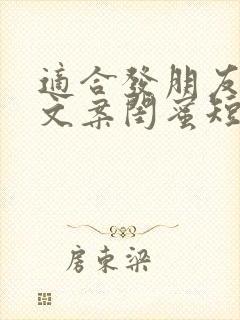 適合發朋友
文案閨蜜短
房東梁